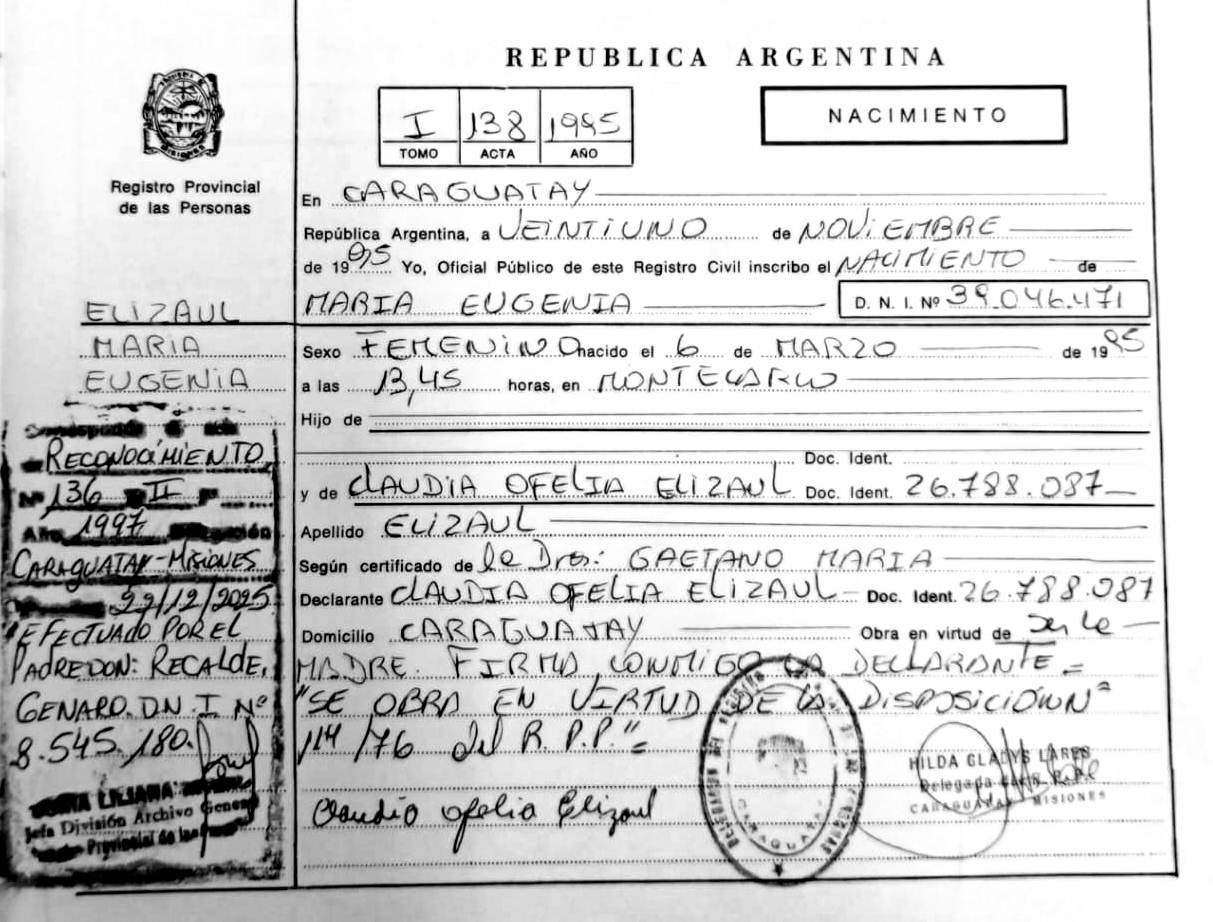 REPUBLICA ARGENTINA
I 138 1995
TOMO ACTA AÑO
NACIMIENTO
Registro Provincial
de las Personas
En CARAGUATAY
República Argentina, a VEINTIUNO de NOVIEMBRE
de 1995 Yo, Oficial Público de este Registro Civil inscribo el NACIMIENTO de
MARIA EUGENIA D. N. I. Nº 39.046.471
ELIZAUL
MARIA
EUGENIA
Sexo FEMENINO nacido el 6 de MARZO de 1995
a las 13,45 horas, en MONTECARLO
Hijo de
Doc. Ident.
y de CLAUDIA OFELIA ELIZAUL Doc. Ident. 26.788.087
Apellido ELIZAUL
Según certificado de GAETANO MARIA
Declarante CLAUDIA OFELIA ELIZAUL Doc. Ident. 26.788.087
Domicilio CARAGUATAY Obra en virtud de
MADRE. FIRMA CONMIGO LA DECLARANTE =
"SE OBRA EN VIRTUD DE LA DISPOSICION"
114/76 del R. P. P." =
Claudia Ofelia Elizaul
HILDA GLADYS LARES
Delegada R. P. P.
CARAGUATAY MISIONES
CARAGUATAY
RECONOCIMIENTO
Nº 136 II
Año 1997
CARAGUATAY-MISIONES
29/12/2025
EFECTUADO POR EL
PADRE DON: RECALDE,
GENARO. D.N.I Nº
8.545.180.
LILIANA
Jefa División Archivo General
Provincial de las